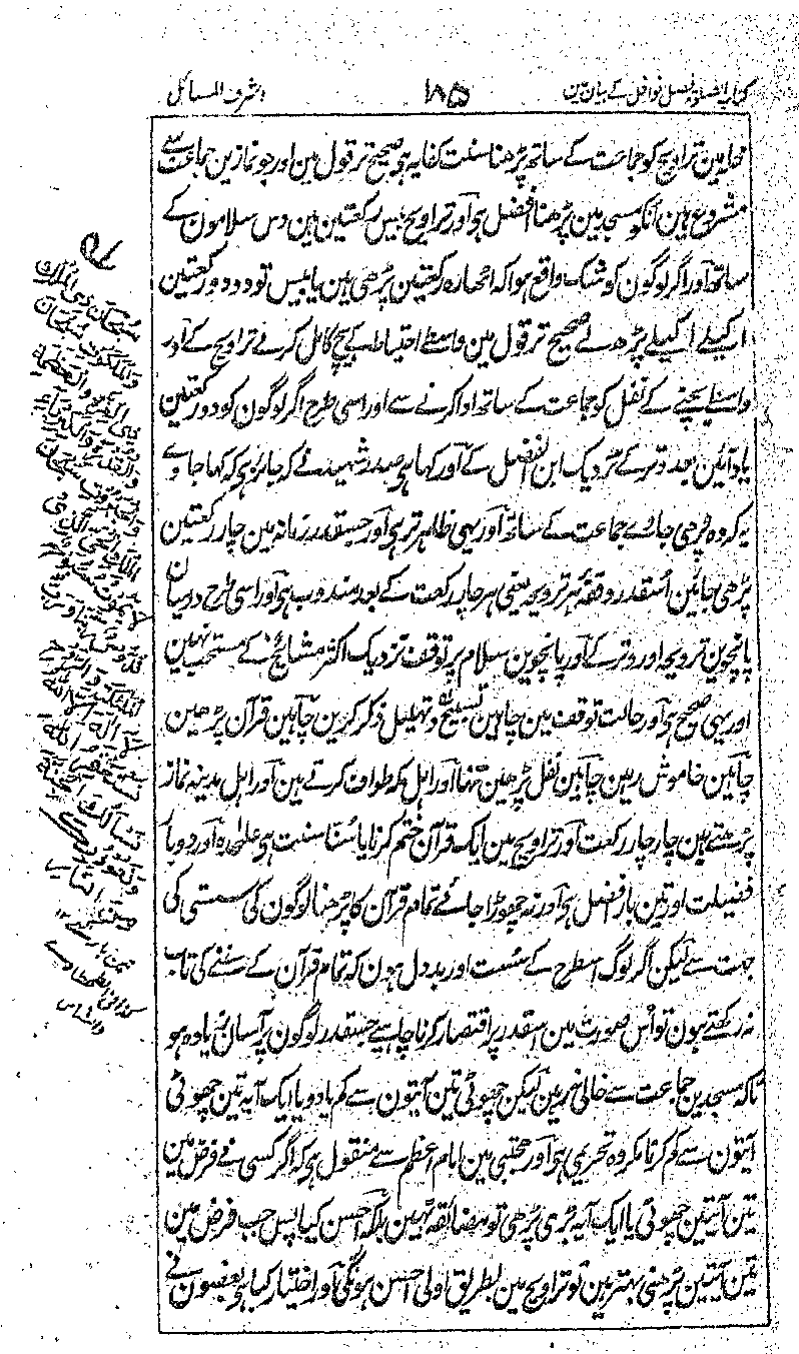 اشرف المسائل
۱۸۵
کتاب الصلوٰۃ فصل نوافل کے بیان مین
محلہ مین تراویح کو جماعت کے ساتھ پڑھنا سنت کفایہ ہی صحیح تر قول مین اور جو نمازین جماعت سے
مشروع ہین اُنکو مسجد مین پڑھنا افضل ہی اور تراویح بیس رکعتین ہین دس سلامون کے
ساتھ اور اگر لوگون کو شک واقع ہوا کہ اٹھارہ رکعتین پڑھی ہین یا بیس تو دو دو رکعتین
اکیلے اکیلے پڑھ لے صحیح تر قول مین واسطے احتیاط کے بیچ کامل کرنے تراویح کے اور
واسطے بچنے کے نفل کو جماعت کے ساتھ ادا کرنے سے اور اسی طرح اگر لوگون کو دو رکعتین
یاد آئین بعد وتر کے نزدیک ابن الفضل کے اور کہا ہی صدر شہید نے کہ جائز ہی کہ کہا جاوے
یہ کہ وہ پڑھی جاوے جماعت کے ساتھ اور یہی ظاہر تر ہی اور جسقدر زمانہ مین چار رکعتین
پڑھی جائین اُسقدر وقفہ ہر ترویحہ یعنی ہر چار رکعت کے بعد مندوب ہی اور اسی طرح درمیان
پانچوین ترویحہ اور وتر کے اور پانچوین سلام پر توقف نزدیک اکثر مشائخ کے مستحب نہین
اور یہی صحیح ہی اور حالت توقف مین چاہین تسبیح و تہلیل ذکر کرین چاہین قرآن پڑھین
چاہین خاموش رہین چاہین نفل پڑھین تنہا اور اہل مکہ طواف کرتے ہین اور اہل مدینہ نماز
پڑھتے ہین چار چار رکعت اور تراویح مین ایک قرآن ختم کرنا یا سننا سنت ہی علٰحدہ اور دو بار
فضیلت اور تین بار افضل ہی اور نہ چھوڑا جائے تمام قرآن کا پڑھنا لوگون کی سستی کی
جہت سے لیکن اگر لوگ اسطرح کے سست اور بددل ہون کہ تمام قرآن کے سننے کی تاب
نہ رکھتے ہون تو اُس صورت مین اسقدر پر اقتصار کرنا چاہیے جسقدر لوگون پر آسان زیادہ ہو
تاکہ مسجدین جماعت سے خالی نہ رہین لیکن چھوٹی تین آیتون سے کم یا دو یا ایک آیہ تین چھوٹی
آیتون سے کم کرنا مکروہ تحریمی ہی اور مجتبی مین امام اعظم سے منقول ہی کہ اگر کسی نے فرض مین
تین آیتین چھوٹی یا ایک آیہ بڑی پڑھی تو مضائقہ نہین بلکہ احسن کیا پس جب فرض مین
تین آیتین پڑھنی بہتر ہین تو تراویح مین بطریق اولی احسن ہونگی اور اختیار کیا ہی بعضون نے
سبحان ذی الملک
والملکوت سبحان
ذی العزۃ والعظمۃ
والقدرۃ والکبریاء
والجبروت سبحان
الملک الحی الذی
لا یموت
سبوح قدوس رب
الملئکۃ والروح
لا الہ الا اللہ
نستغفر اللہ
نسألک الجنۃ
ونعوذ بک
من النار
تین بار